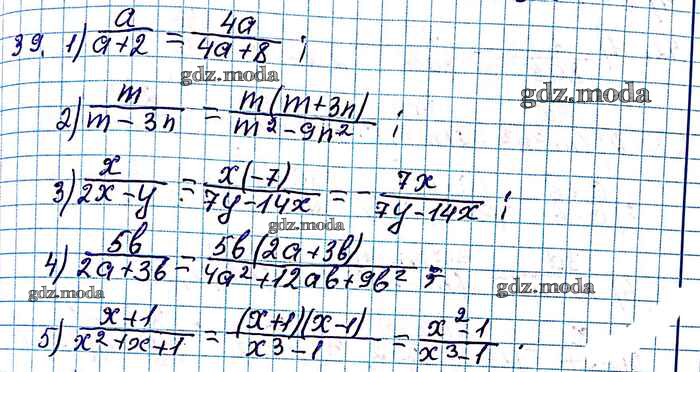 39. 1) a/(a+2) = 4a/(4a+8) ;
gdz.moda
gdz.moda
2) m/(m-3n) = m(m+3n)/(m²-9n²) ;
3) x/(2x-y) = x(-7)/(7y-14x) = - 7x/(7y-14x) ;
gdz.moda
4) 5b/(2a+3b) = 5b(2a+3b)/(4a²+12ab+9b²) ;
gdz.moda
gdz.moda
5) (x+1)/(x²+x+1) = (x+1)(x-1)/(x³-1) = (x²-1)/(x³-1) .
gdz.moda